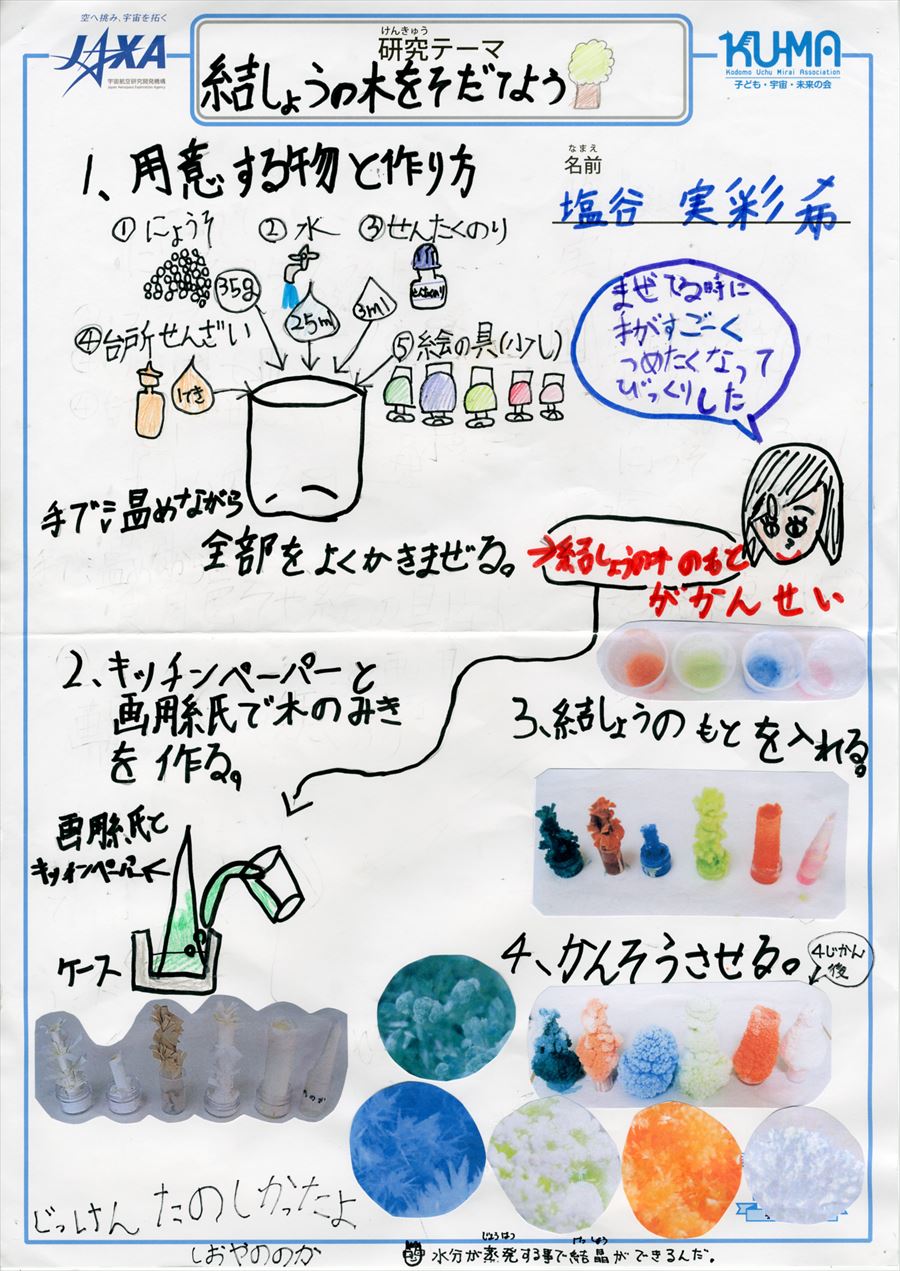 空へ挑み、宇宙を拓く
JAXA
宇宙航空研究開発機構
Japan Aerospace Exploration Agency
けんきゅう
研究テーマ
結しょうの木をそだてよう
KU-MA
Kodomo Uchu Mirai Association
子ども・宇宙・未来の会
なまえ
名前
塩谷 実彩希
1、用意する物と作り方
①にょうそ
②水
③せんたくのり
35g
25ml
3ml
せんたくのり
④台所せんざい
1てき
⑤絵の具(少し)
まぜてる時に
手がすごーく
つめたくなって
びっくりした
手で温めながら
全部をよくかきまぜる。
→結しょうの木のもと
がかんせい
2、キッチンペーパーと
画用紙で木のみき
を作る。
3、結しょうのもとを入れる。
画用紙と
キッチンペーパー
ケース
4、かんそうさせる。
4じかん
後
じっけんたのしかったよ
しおやののか
じょうはつ
けっしょう
水分が蒸発する事で結晶ができるんだ。